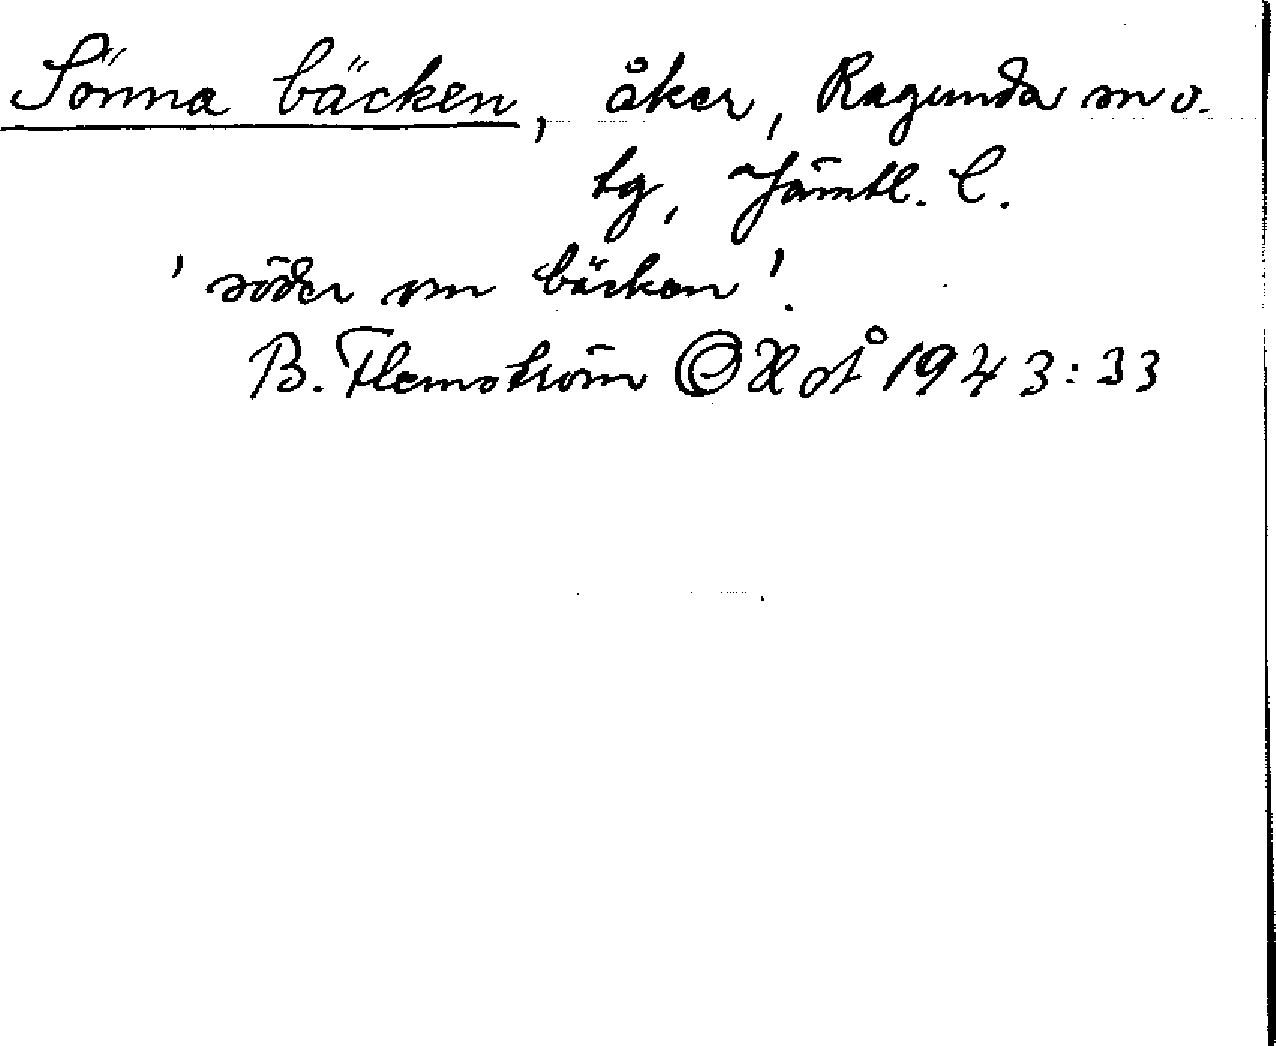 Sönna bäcken, åker, Ragunda sn o.
tg, Jämtl. l.
'söder om bäcken'.
B. Flemström 1943:33